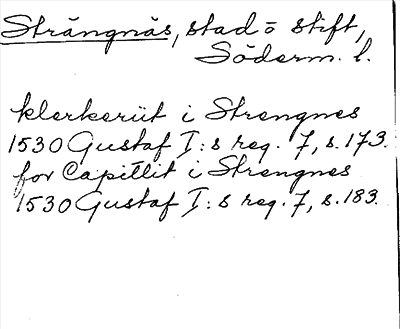 Strängnäs, stad o stift,
Söderm. l.
klerkeriit i Strengnes
1530 Gustaf I:s reg. 7, s. 173.
for Capitlit i Strengnes
1530 Gustaf I:s reg. 7, s. 183.